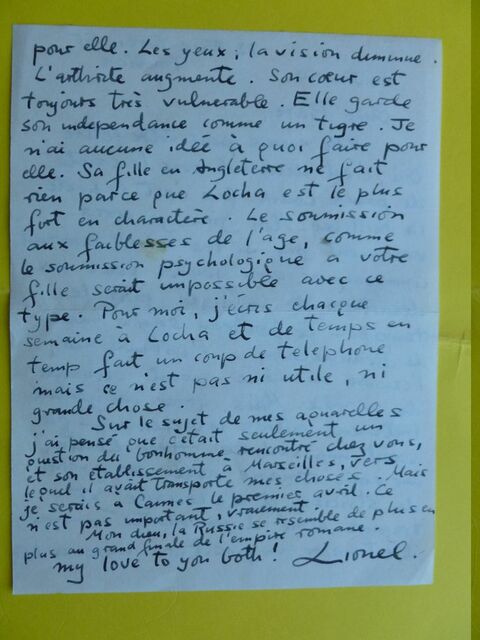 pour elle. Les yeux; la vision diminue.
L'arthrite augmente. Son cœur est
toujours très vulnerable. Elle garde
son independance comme un tigre. Je
n'ai aucune idée à quoi faire pour
elle. Sa fille en Angleterre ne fait
rien parce que Locha est le plus
fort en charactere. Le soumission
aux faiblesses de l'age, comme
le soumission psychologique a votre
fille serait impossible avec ce
type. Pour moi, j'écris chacque
semaine à Locha et de temps en
temp fait un coup de telephone
mais ce n'est pas ni utile, ni
grande chose.
Sur le sujet de mes aquarelles
j'ai pensé que c'était seulement un
question du bonhomme rencontré chez vous,
et son etablissement à Marseilles, vers
lequel il avait transporté mes choses. Mais
je serais a Cannes le premier avril. Ce
n'est pas important, vraiment.
Mon dieu, la Russie se resemble de plus en
plus au grand finale de l'empire romane.
my love to you both! Lionel.